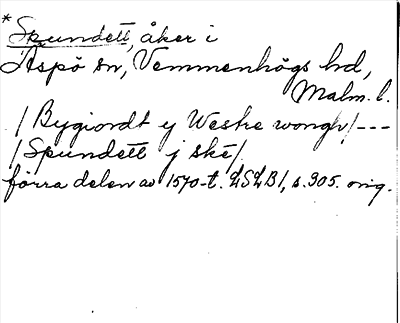 *Spundett, åker i
Äspö sn, Vemmenhögs hd,
Malm. l.
/ Bygiordt ej Westre wongh / ---
/ Spundett j skē /
förra delen av 1570-t. LSLB1, s. 305. orig.